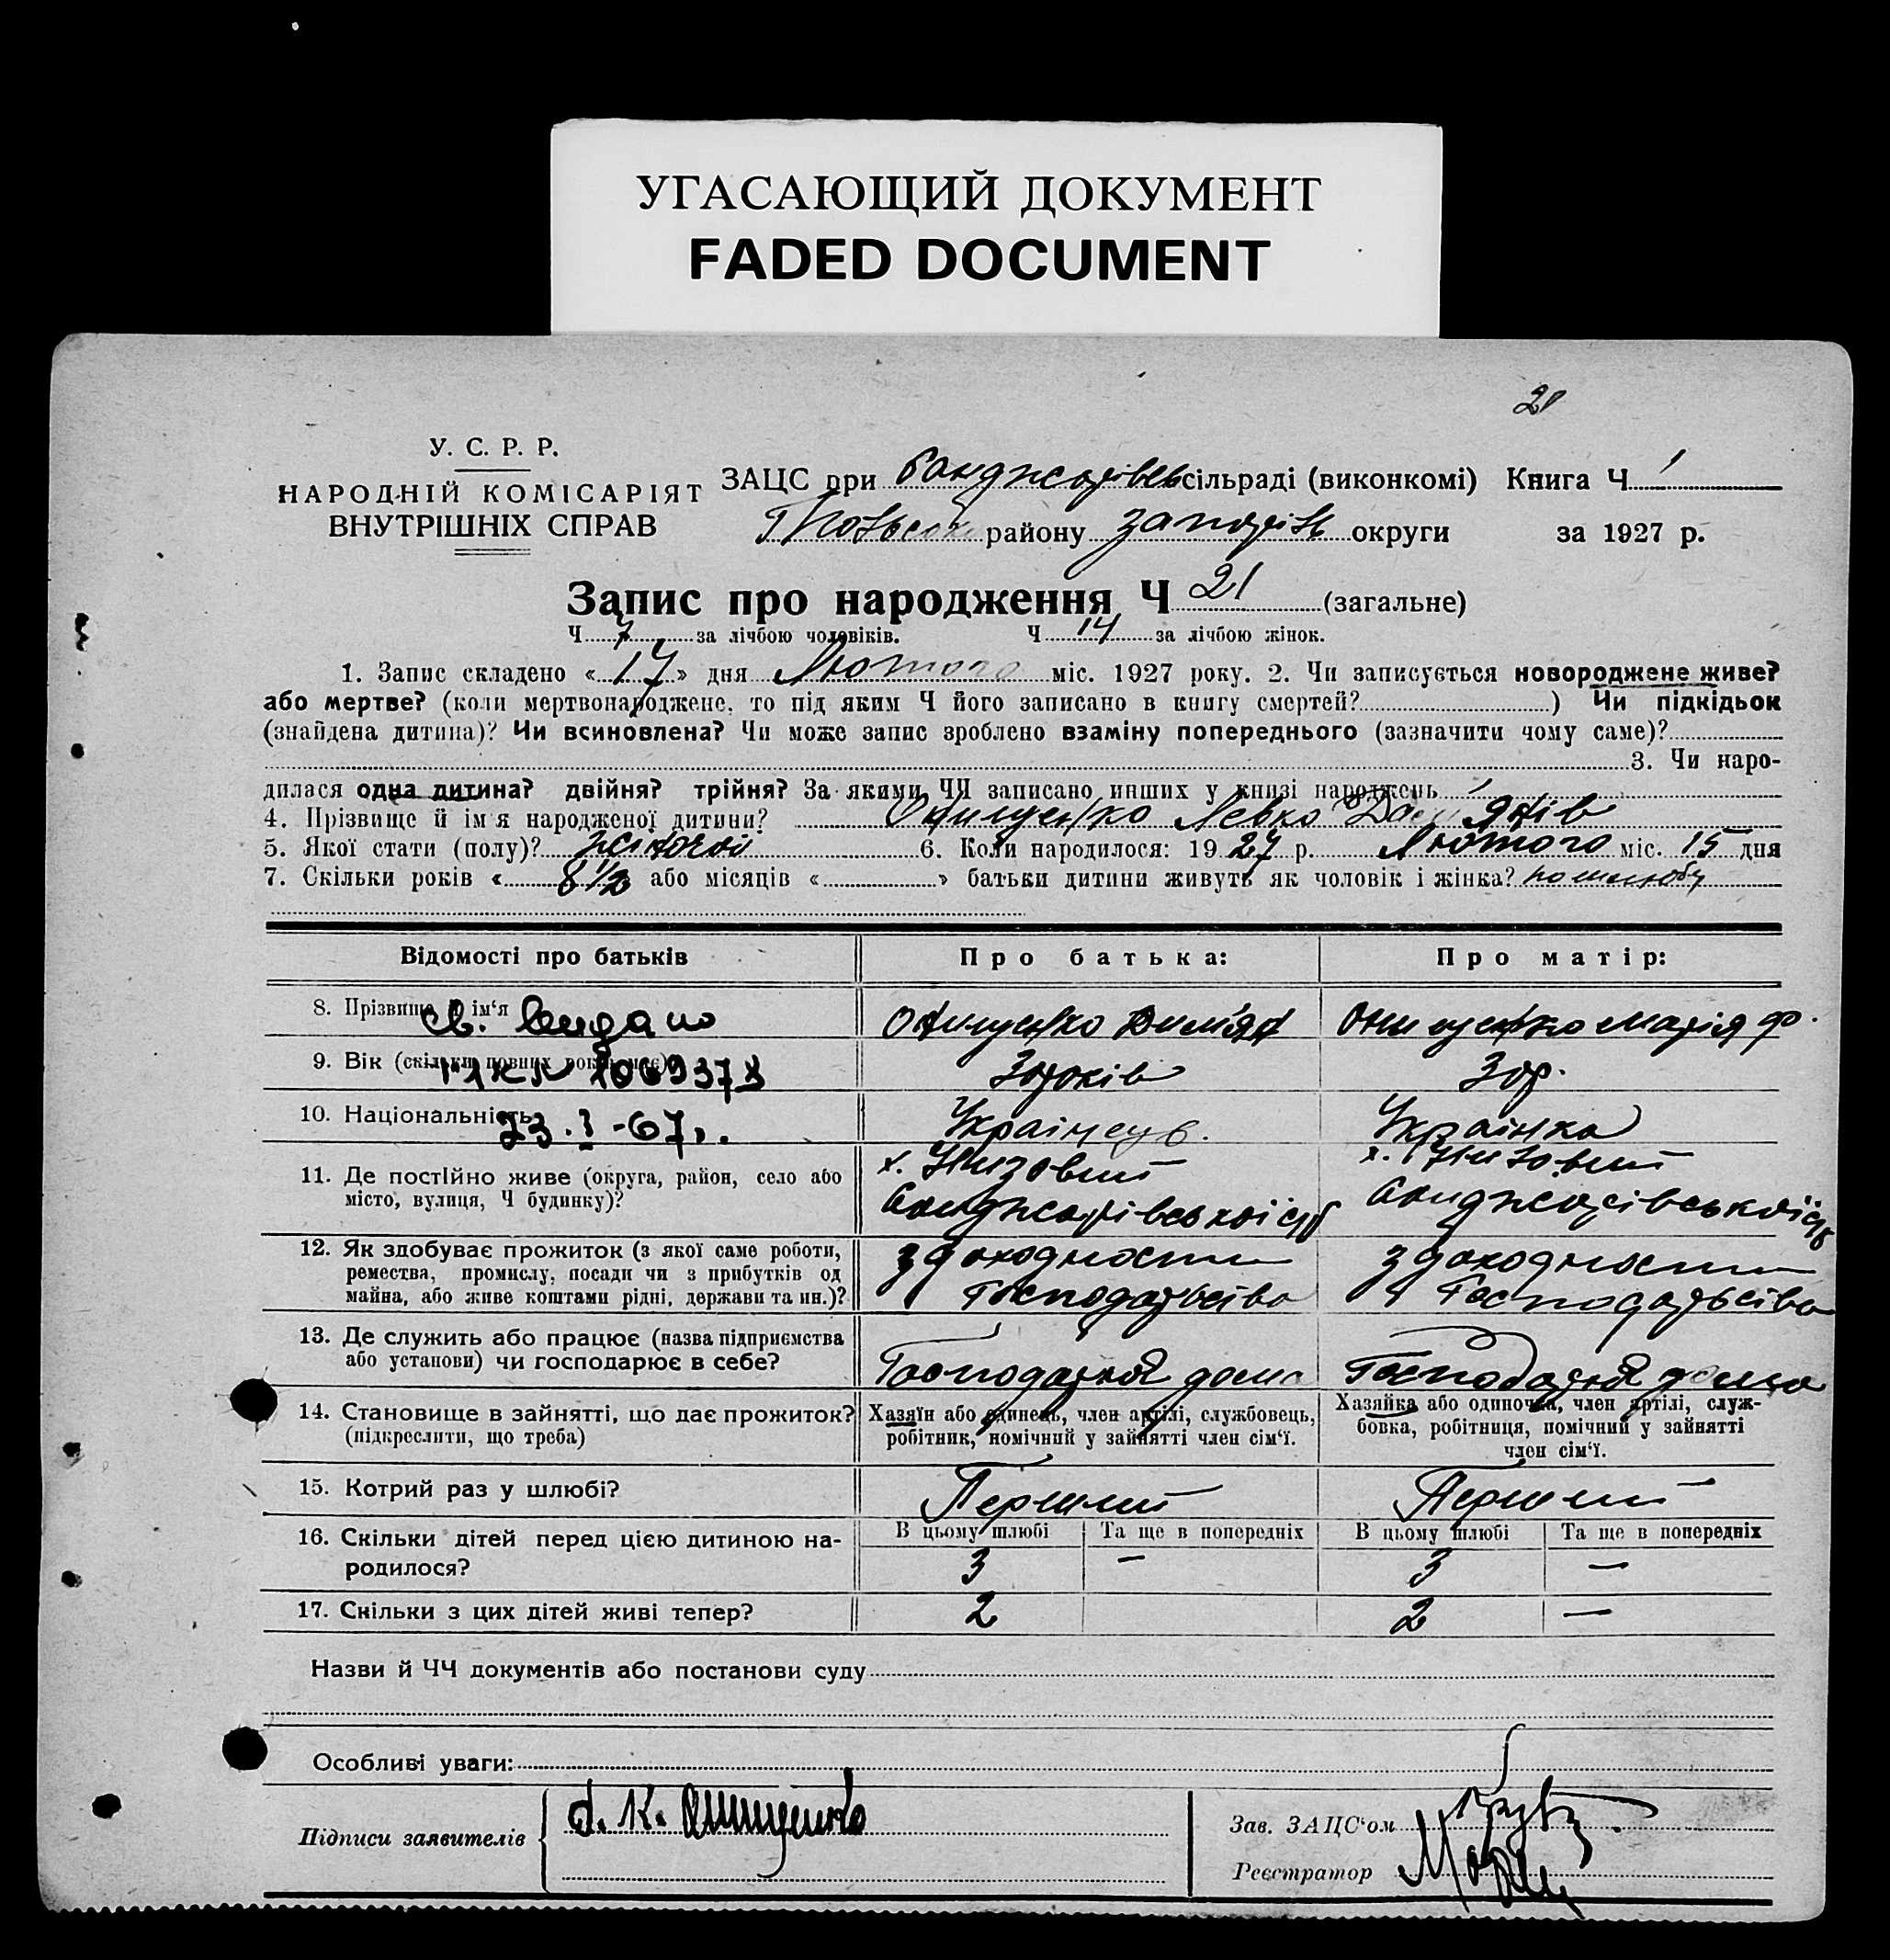 УГАСАЮЩИЙ ДОКУМЕНТ
FADED DOCUMENT
21
У. С. Р. Р.
НАРОДНІЙ КОМІСАРІЯТ
ВНУТРІШНІХ СПРАВ
ЗАЦС при сільраді (виконкомі) Книга Ч 1
району Запоріз округи за 1927 р.
Запис про народження Ч 21 (загальне)
Ч 7 за лічбою чоловіків. Ч 14 за лічбою жінок.
1. Запис складено «17» дня Лютого міс. 1927 року. 2. Чи записується новороджене живе?
або мертве? (коли мертвонароджене, то під яким Ч його записано в книгу смертей? ) Чи підкідьок
(знайдена дитина)? Чи всиновлена? Чи може запис зроблено взаміну попереднього (зазначити чому саме)?
3. Чи наро-
дилася одна дитина? двійня? трійня? За якими ЧЧ записано инших у книзі народжень
4. Прізвище й ім'я народженої дитини? Онищенко Левко
5. Якої стати (полу)? жіночої 6. Коли народилося: 1927 р. Лютого міс. 15 дня
7. Скільки років « 8 1/2 або місяців « » батьки дитини живуть як чоловік і жінка? по шлюбу
Відомості про батьків Про батька: Про матір:
8. Прізвище й ім'я Онищенко Дем'ян Онищенко Марія Ф.
Св. видано
9. Вік (скільки повних років має) 30 років 30 р.
1069373
10. Національність Українець. Українка
23.I-67г.
11. Де постійно живе (округа, район, село або
місто, вулиця, Ч будинку)?
х. Низовий х. Низовий
12. Як здобуває прожиток (з якої саме роботи,
ремества, промислу, посади чи з прибутків од
майна, або живе коштами рідні, держави та ин.)?
з доходности з доходности
Господарьства Господарьства
13. Де служить або працює (назва підприємства
або установи) чи господарює в себе?
Господарка дома Господарка дома
14. Становище в зайнятті, що дає прожиток?
(підкреслити, що треба)
Хазяїн або одинець, член артілі, службовець,
робітник, помічний у зайнятті член сім'ї.
Хазяйка або одиночка, член артілі, служ-
бовка, робітниця, помічний у зайнятті
член сім'ї.
15. Котрий раз у шлюбі? Перший Перший
16. Скільки дітей перед цією дитиною на-
родилося?
В цьому шлюбі Та ще в попередніх В цьому шлюбі Та ще в попередніх
3 — 3 —
17. Скільки з цих дітей живі тепер? 2 2 —
Назви й ЧЧ документів або постанови суду
Особливі уваги:
Підписи заявителів Д. К. Онищенко
Зав. ЗАЦС'ом
Реєстратор